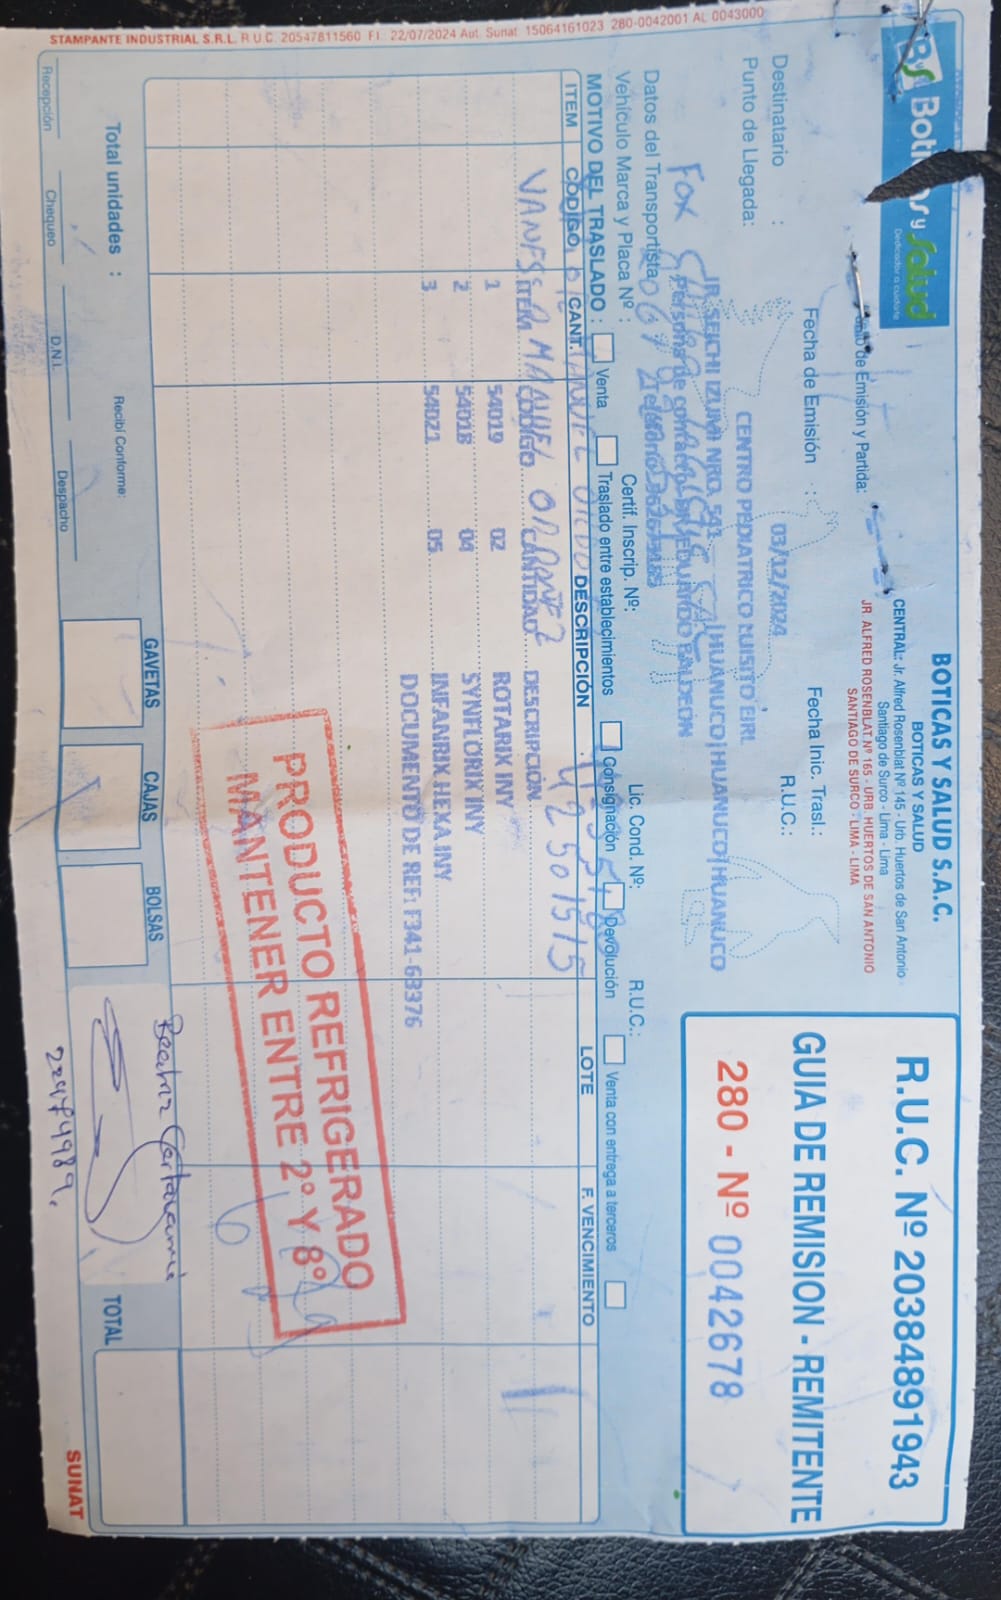 STAMPANTE INDUSTRIAL S.R.L. R.U.C. 20547811560 F.I. 22/07/2024 Aut. Sunat 15064161023 280-0042001 AL 0043000
BS Boticas y Salud
Dedicados a cuidarte
BOTICAS Y SALUD S.A.C.
BOTICAS Y SALUD
CENTRAL: Jr. Alfred Rosenblat Nº 145 - Urb. Huertos de San Antonio
Santiago de Surco - Lima - Lima
JR. ALFRED ROSENBLAT Nº 165 - URB. HUERTOS DE SAN ANTONIO
SANTIAGO DE SURCO - LIMA - LIMA
R.U.C. Nº 20384891943
GUIA DE REMISION - REMITENTE
280 - Nº 0042678
de Emisión y Partida:
Fecha de Emisión :
03/12/2024
Fecha Inic. Trasl.:
Destinatario :
CENTRO PEDIATRICO LUISITO EIRL
R.U.C.:
Punto de Llegada:
JR. SEICHI IZUMI NRO. 541 | HUANUCO | HUANUCO | HUANUCO
FOX
Datos del Transportista
R.U.C.:
Vehículo Marca y Placa Nº :
Certif. Inscrip. Nº:
Lic. Cond. Nº:
MOTIVO DEL TRASLADO :
Venta
Traslado entre establecimientos
Consignación
Devolución
Venta con entrega a terceros
ITEM CÓDIGO CANT. DESCRIPCIÓN LOTE F. VENCIMIENTO
42501515
ITEM CÓDIGO CANTIDAD DESCRIPCIÓN
1 54019 02 ROTARIX INY
2 54018 04 SYNFLORIX INY
3 54021 05 INFANRIX HEXA INY
DOCUMENTO DE REF: F341-63376
PRODUCTO REFRIGERADO
MANTENER ENTRE 2º Y 8º
Total unidades :
Recibí Conforme:
GAVETAS
CAJAS
BOLSAS
TOTAL
Recepción
Chequeo
D.N.I.
Despacho
SUNAT